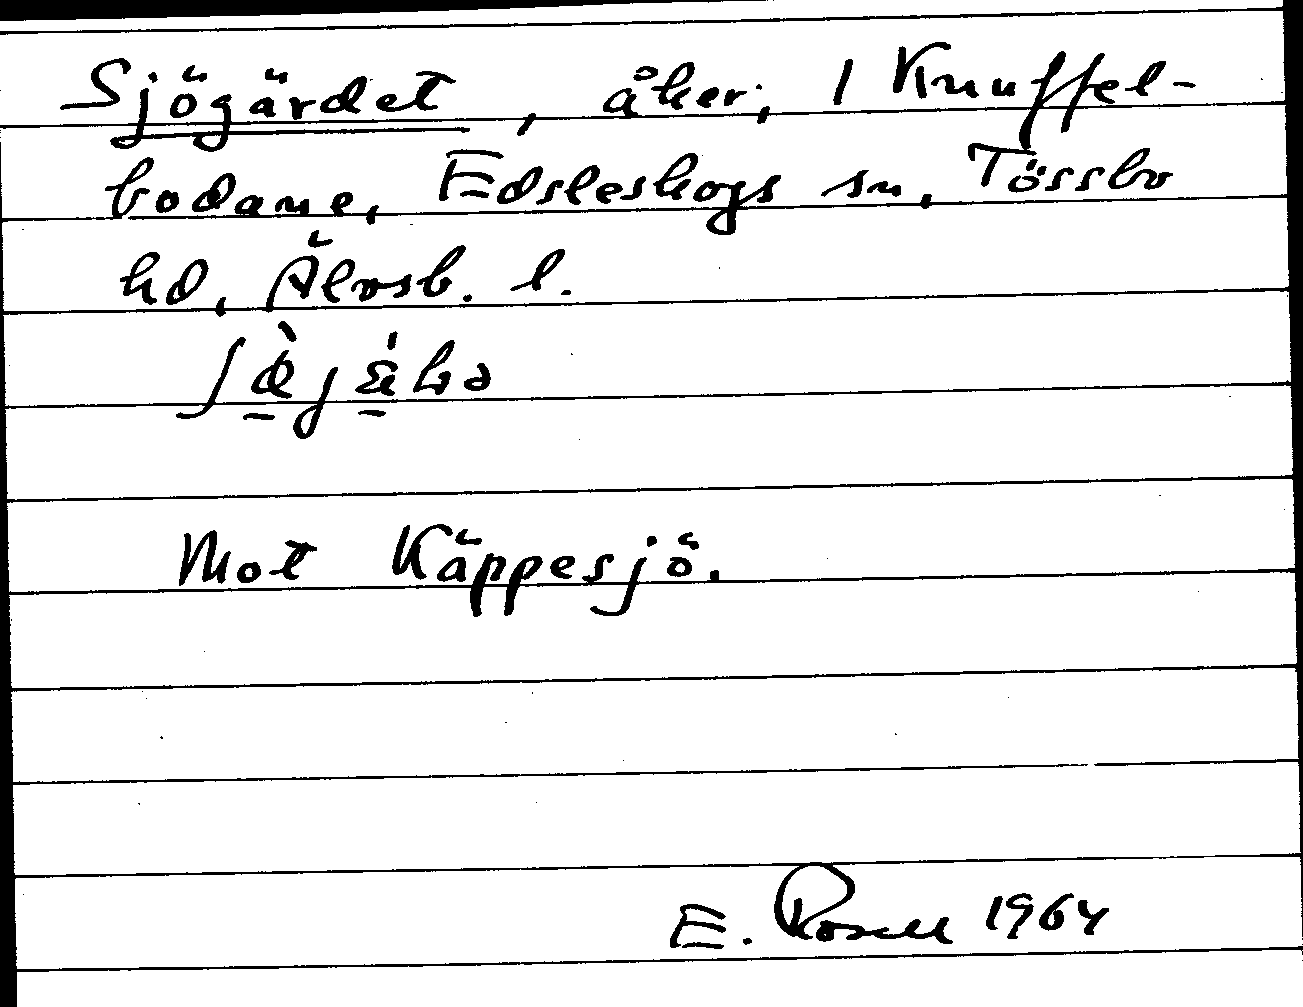 Sjögärdet, åker, 1 Knuffel-
bodane, Edsleskogs sn, Tössbo
hd, Älvsb. l.
Mot Käppesjö.
E. Rosell 1964